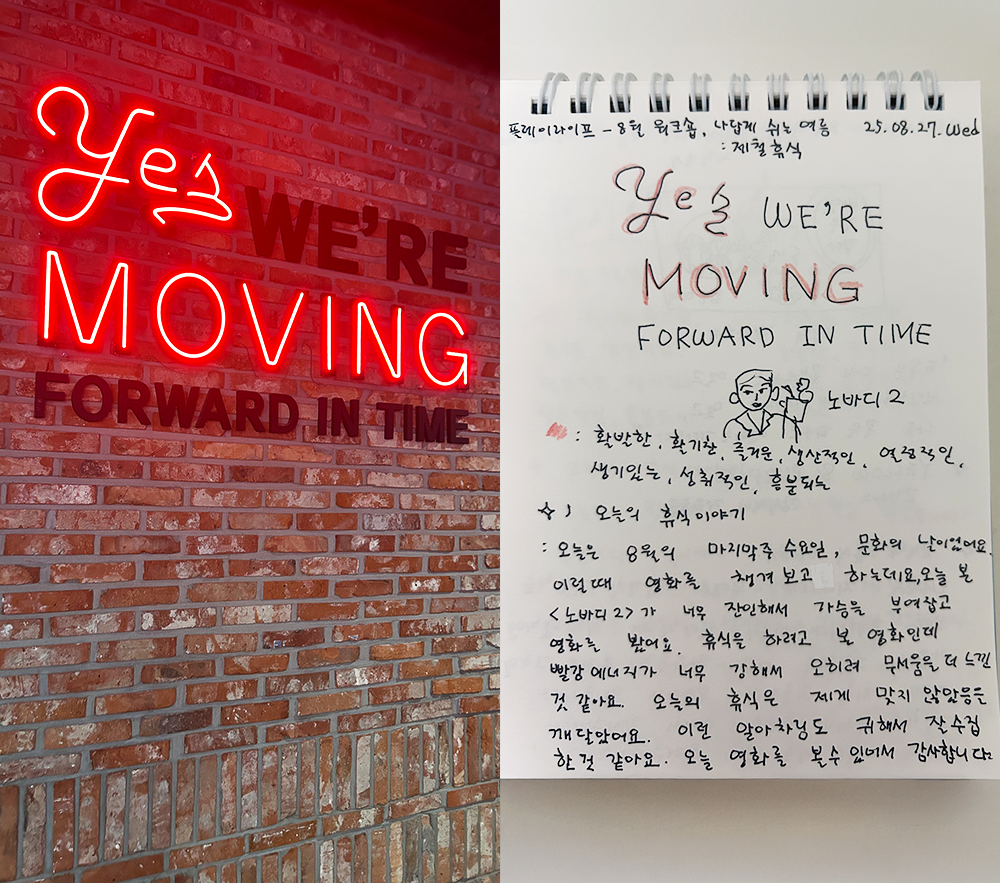 Yes WE'RE
MOVING
FORWARD IN TIME
플레이라이프 - 8월 워크숍, 나답게 쉬는 여름 25.08.27.Wed
: 제철휴식
Yes WE'RE
MOVING
FORWARD IN TIME
노바디 2
: 활발한, 활기찬, 즐거운, 생산적인, 열정적인,
생기있는, 성취적인, 흥분되는
오늘의 휴식이야기
: 오늘은 8월의 마지막주 수요일, 문화의 날이었어요.
이럴때 영화를 챙겨보고 하는데요, 오늘 본
<노바디2>가 너무 잔인해서 가슴을 부여잡고
영화를 봤어요. 휴식을 하려고 본 영화인데
빨강 에너지가 너무 강해서 오히려 무서움을 더 느낀
것 같아요. 오늘의 휴식은 제게 맞지 않았음을
깨달았어요. 이런 알아차림도 귀해서 잘 수집
한 것 같아요. 오늘 영화를 볼 수 있어서 감사합니다